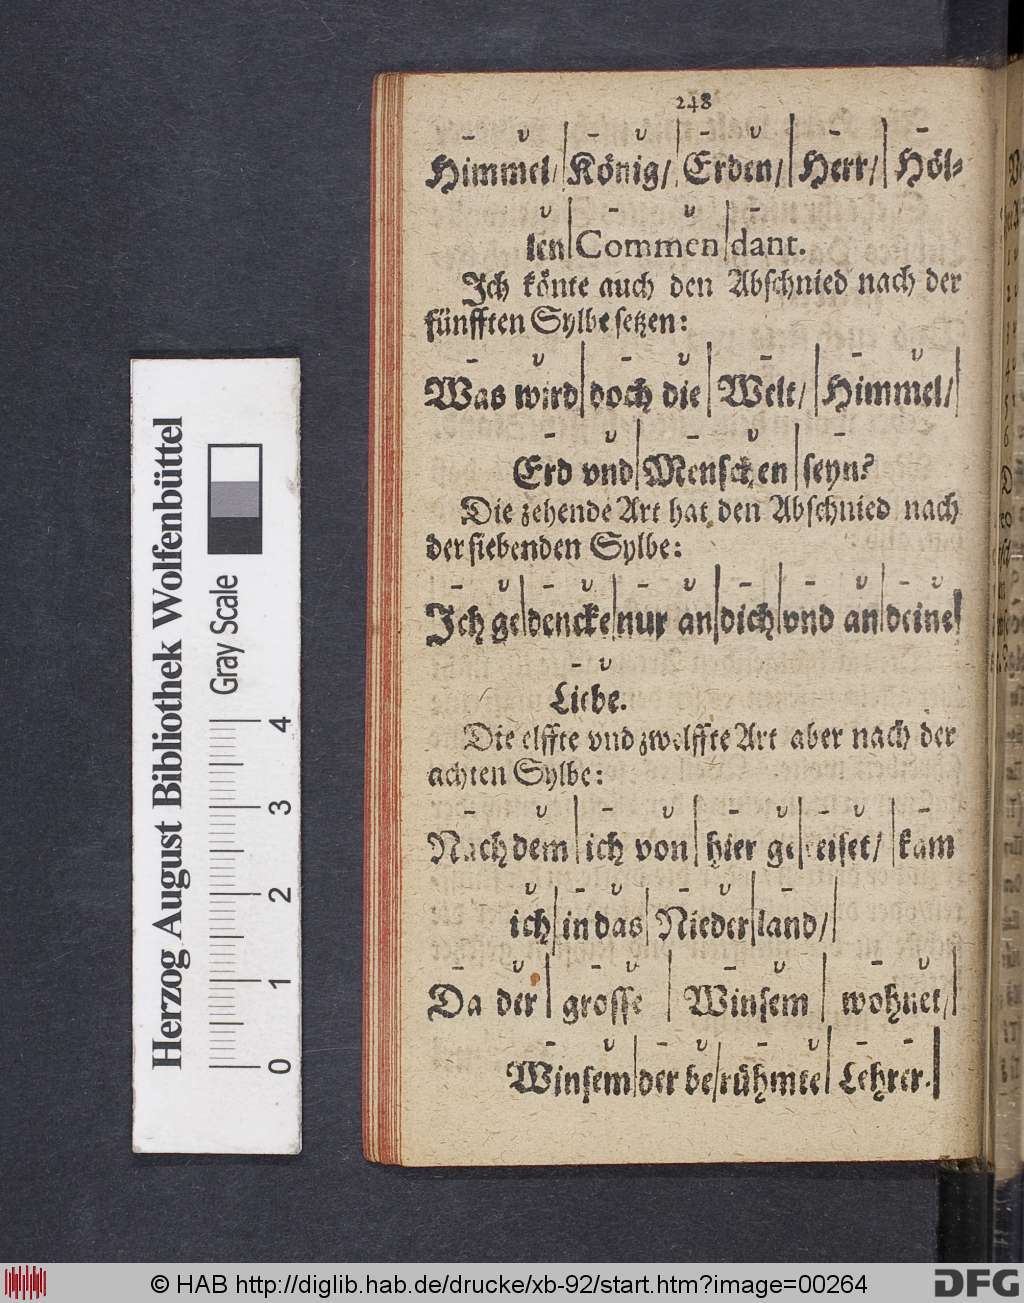 248
Himmel/ König/ Erden/ Herr/ Höl-
len Commen dant.
Ich könte auch den Abschnied nach der
fünfften Sylbe setzen:
Was wird doch die Welt/ Himmel/
Erd vnd Menschen seyn?
Die zehende Art hat den Abschnied nach
der siebenden Sylbe:
Ich ge dencke nur an dich vnd an deine
Liebe.
Die elffte vnd zwelffte Art aber nach der
achten Sylbe:
Nach dem ich von hier gereiset/ kam
ich in das Nieder land/
Da der grosse Winsem wohnet/
Winsem der be rühmte Lehrer.
Herzog August Bibliothek Wolfenbüttel
Gray Scale
0 1 2 3 4
© HAB http://diglib.hab.de/drucke/xb-92/start.htm?image=00264
DFG